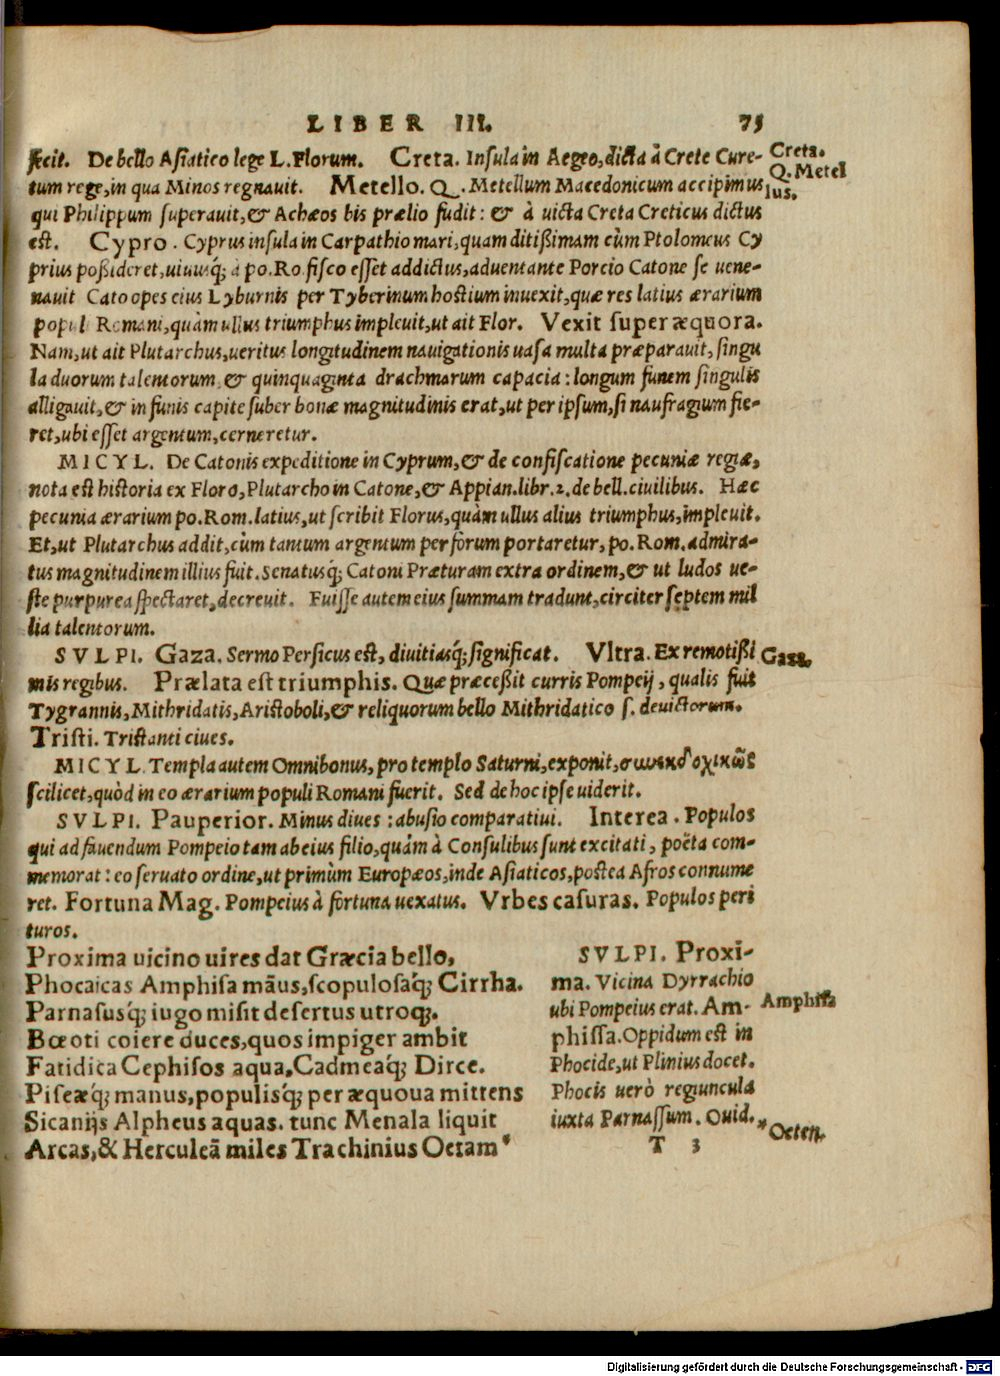 LIBER III. 75
fecit. De bello Asiatico lege L. Florum. Creta. Insula in Aegeo, dicta à Crete Cure-
Creta.
tum rege, in qua Minos regnauit. Metello. Q. Metellum Macedonicum accipimus
Q. Metel
lus.
qui Philippum superauit, & Achæos bis prælio fudit: & à uicta Creta Creticus dictus
est. Cypro. Cyprus insula in Carpathio mari, quam ditißimam cùm Ptolomeus Cy
prius poßideret, uiuusq́; à po. Ro. fisco esset addictus, aduentante Porcio Catone se uene-
nauit Cato opes eius Lyburnis per Tyberinum hostium inuexit, quæ res latius ærarium
populi Romani, quàm ullus triumphus impleuit, ut ait Flor. Vexit super æquora.
Nam, ut ait Plutarchus, ueritus longitudinem nauigationis uasa multa præparauit, singu
la duorum talentorum & quinquaginta drachmarum capacia: longum funem singulis
alligauit, & in funis capite suber bonæ magnitudinis erat, ut per ipsum, si naufragium fie-
ret, ubi esset argentum, cerneretur.
MICYL. De Catonis expeditione in Cyprum, & de confiscatione pecuniæ regiæ,
nota est historia ex Floro, Plutarcho in Catone, & Appian. libr. 2. de bell. ciuilibus. Hæc
pecunia ærarium po. Rom. latius, ut scribit Florus, quàm ullus alius triumphus, impleuit.
Et, ut Plutarchus addit, cùm tantum argentum per forum portaretur, po. Rom. admira-
tus magnitudinem illius fuit. Senatusq́; Catoni Præturam extra ordinem, & ut ludos ue-
ste purpurea spectaret, decreuit. Fuisse autem eius summam tradunt, circiter septem mil
lia talentorum.
SVLPI. Gaza. Sermo Persicus est, diuitiasq́; significat. Vltra. Ex remotißi
Gaza.
mis regibus. Prælata est triumphis. Quæ præceßit curris Pompeij, qualis fuit
Tygrannis, Mithridatis, Aristoboli, & reliquorum bello Mithridatico s. deuictorum.
Tristi. Tristanti ciues.
MICYL. Templa autem Omnibonus, pro templo Saturni, exponit, συνεκδοχικῶς
scilicet, quòd in eo ærarium populi Romani fuerit. Sed de hoc ipse uiderit.
SVLPI. Pauperior. Minus diues: abusio comparatiui. Interea. Populos
qui ad fauendum Pompeio tam ab eius filio, quám à Consulibus sunt excitati, poëta com-
memorat: eo seruato ordine, ut primùm Europæos, inde Asiaticos, postea Afros connume
ret. Fortuna Mag. Pompeius à fortuna uexatus. Vrbes casuras. Populos peri
turos.
Proxima uicino uires dat Græcia bello,
Phocaicas Amphisa māus, scopulosaq́; Cirrha.
Parnasusq́; iugo misit desertus utroq;.
Bœoti coiere duces, quos impiger ambit
Fatidica Cephisos aqua, Cadmeaq́; Dirce.
Piseæq́; manus, populisq́; per æquoua mittens
Sicanijs Alpheus aquas. tunc Menala liquit
Arcas, & Herculeā miles Trachinius Oetam
SVLPI. Proxi-
ma. Vicina Dyrrachio
ubi Pompeius erat. Am-
Amphissa
phissa. Oppidum est in
Phocide, ut Plinius docet.
Phocis uerò regiuncula
iuxta Parnassum. Ouid.
Oeten.
T 3
Digitalisierung gefördert durch die Deutsche Forschungsgemeinschaft - DFG